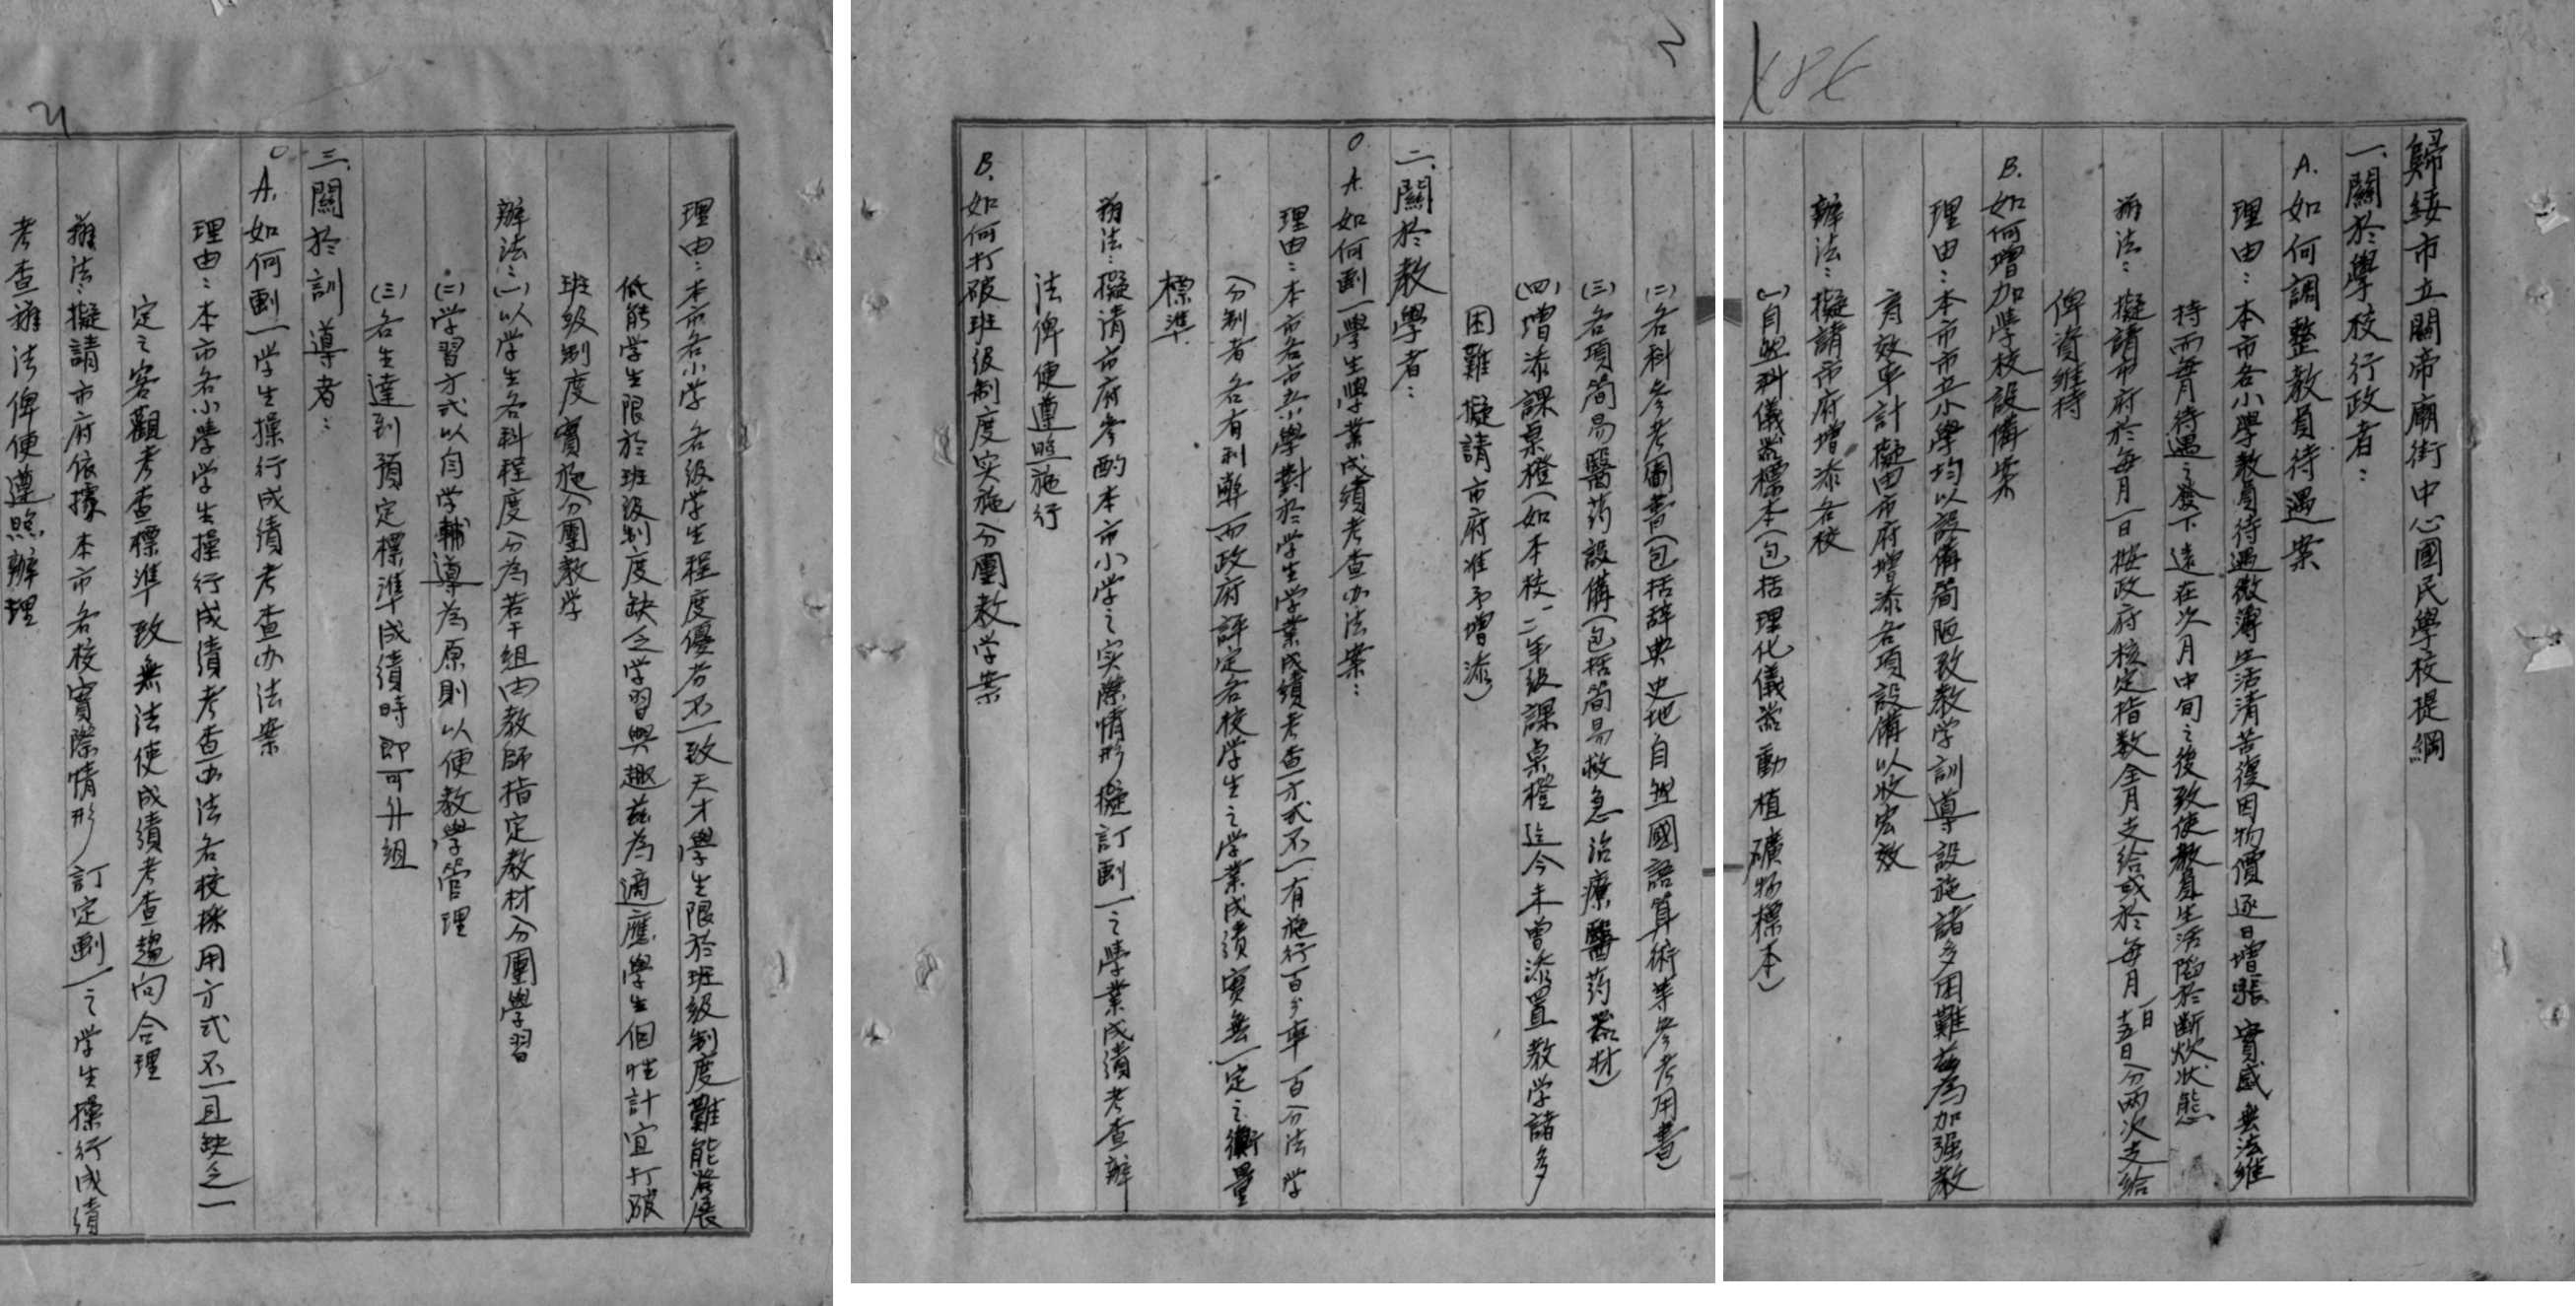 歸綏市立關帝廟街中心國民學校提綱
一、關於學校行政者：
A.如何調整教員待遇案
理由：本市各小學教員待遇微薄生活清苦復因物價逐日增漲實感無法維
持而每月待遇之發下遠在次月中旬之後致使教員生活陷於斷炊狀態
辦法：擬請市府於每月一日按政府核定指數全月支給或於每月一日十五日分兩次支給
俾資維持
B.如何增加學校設備案
理由：本市市立小學均以設備簡陋致教学訓導設施諸多困難茲為加强教
育效率計擬由市府增添各項設備以收宏效
辦法：擬請市府增添各校
(一)自然科儀器標本(包括理化儀器動植礦物標本)
(二)各科參考圖書(包括辞典史地自然國語算術等參考用書)
(三)各項簡易醫药設備(包括簡易救急治療醫药器材)
(四)增添課桌橙(如本校一二年級課桌橙迄今未曾添置教学諸多
困難擬請市府准予增添)
二、關於教學者：
A.如何劃一學生學業成績考查办法案：
理由：本市各市立小學對於学生学業成績考查方式不一有施行百分率百分法学
分制者各有利弊而政府評定各校学生之学業成績實無一定之衡量
標準
辦法：擬请市府參酌本市小学之实際情形擬訂劃一之學業成績考查辦
法俾便遵照施行
B.如何打破班级制度实施分團教学案
理由：本市各小学各级学生程度優劣不一致天才學生限於班级制度難能發展
低能学生限於班级制度缺乏学習興趣茲為適應學生個性計宜打破
班级制度實施分團教学
辦法：(一)以学生各科程度分為若干組由教師指定教材分團學習
(二)学習方式以自学輔導為原則以便教學管理
(三)各生達到預定標準成績時即可升組
三、關於訓導者：
A.如何劃一学生操行成績考查办法案
理由：本市各小學学生操行成績考查办法各校採用方式不一且缺乏一
定之客觀考查標準致無法使成績考查趨向合理
辦法：擬請市府依據本市各校實際情形訂定劃一之学生操行成績
考查辦法俾便遵照辦理